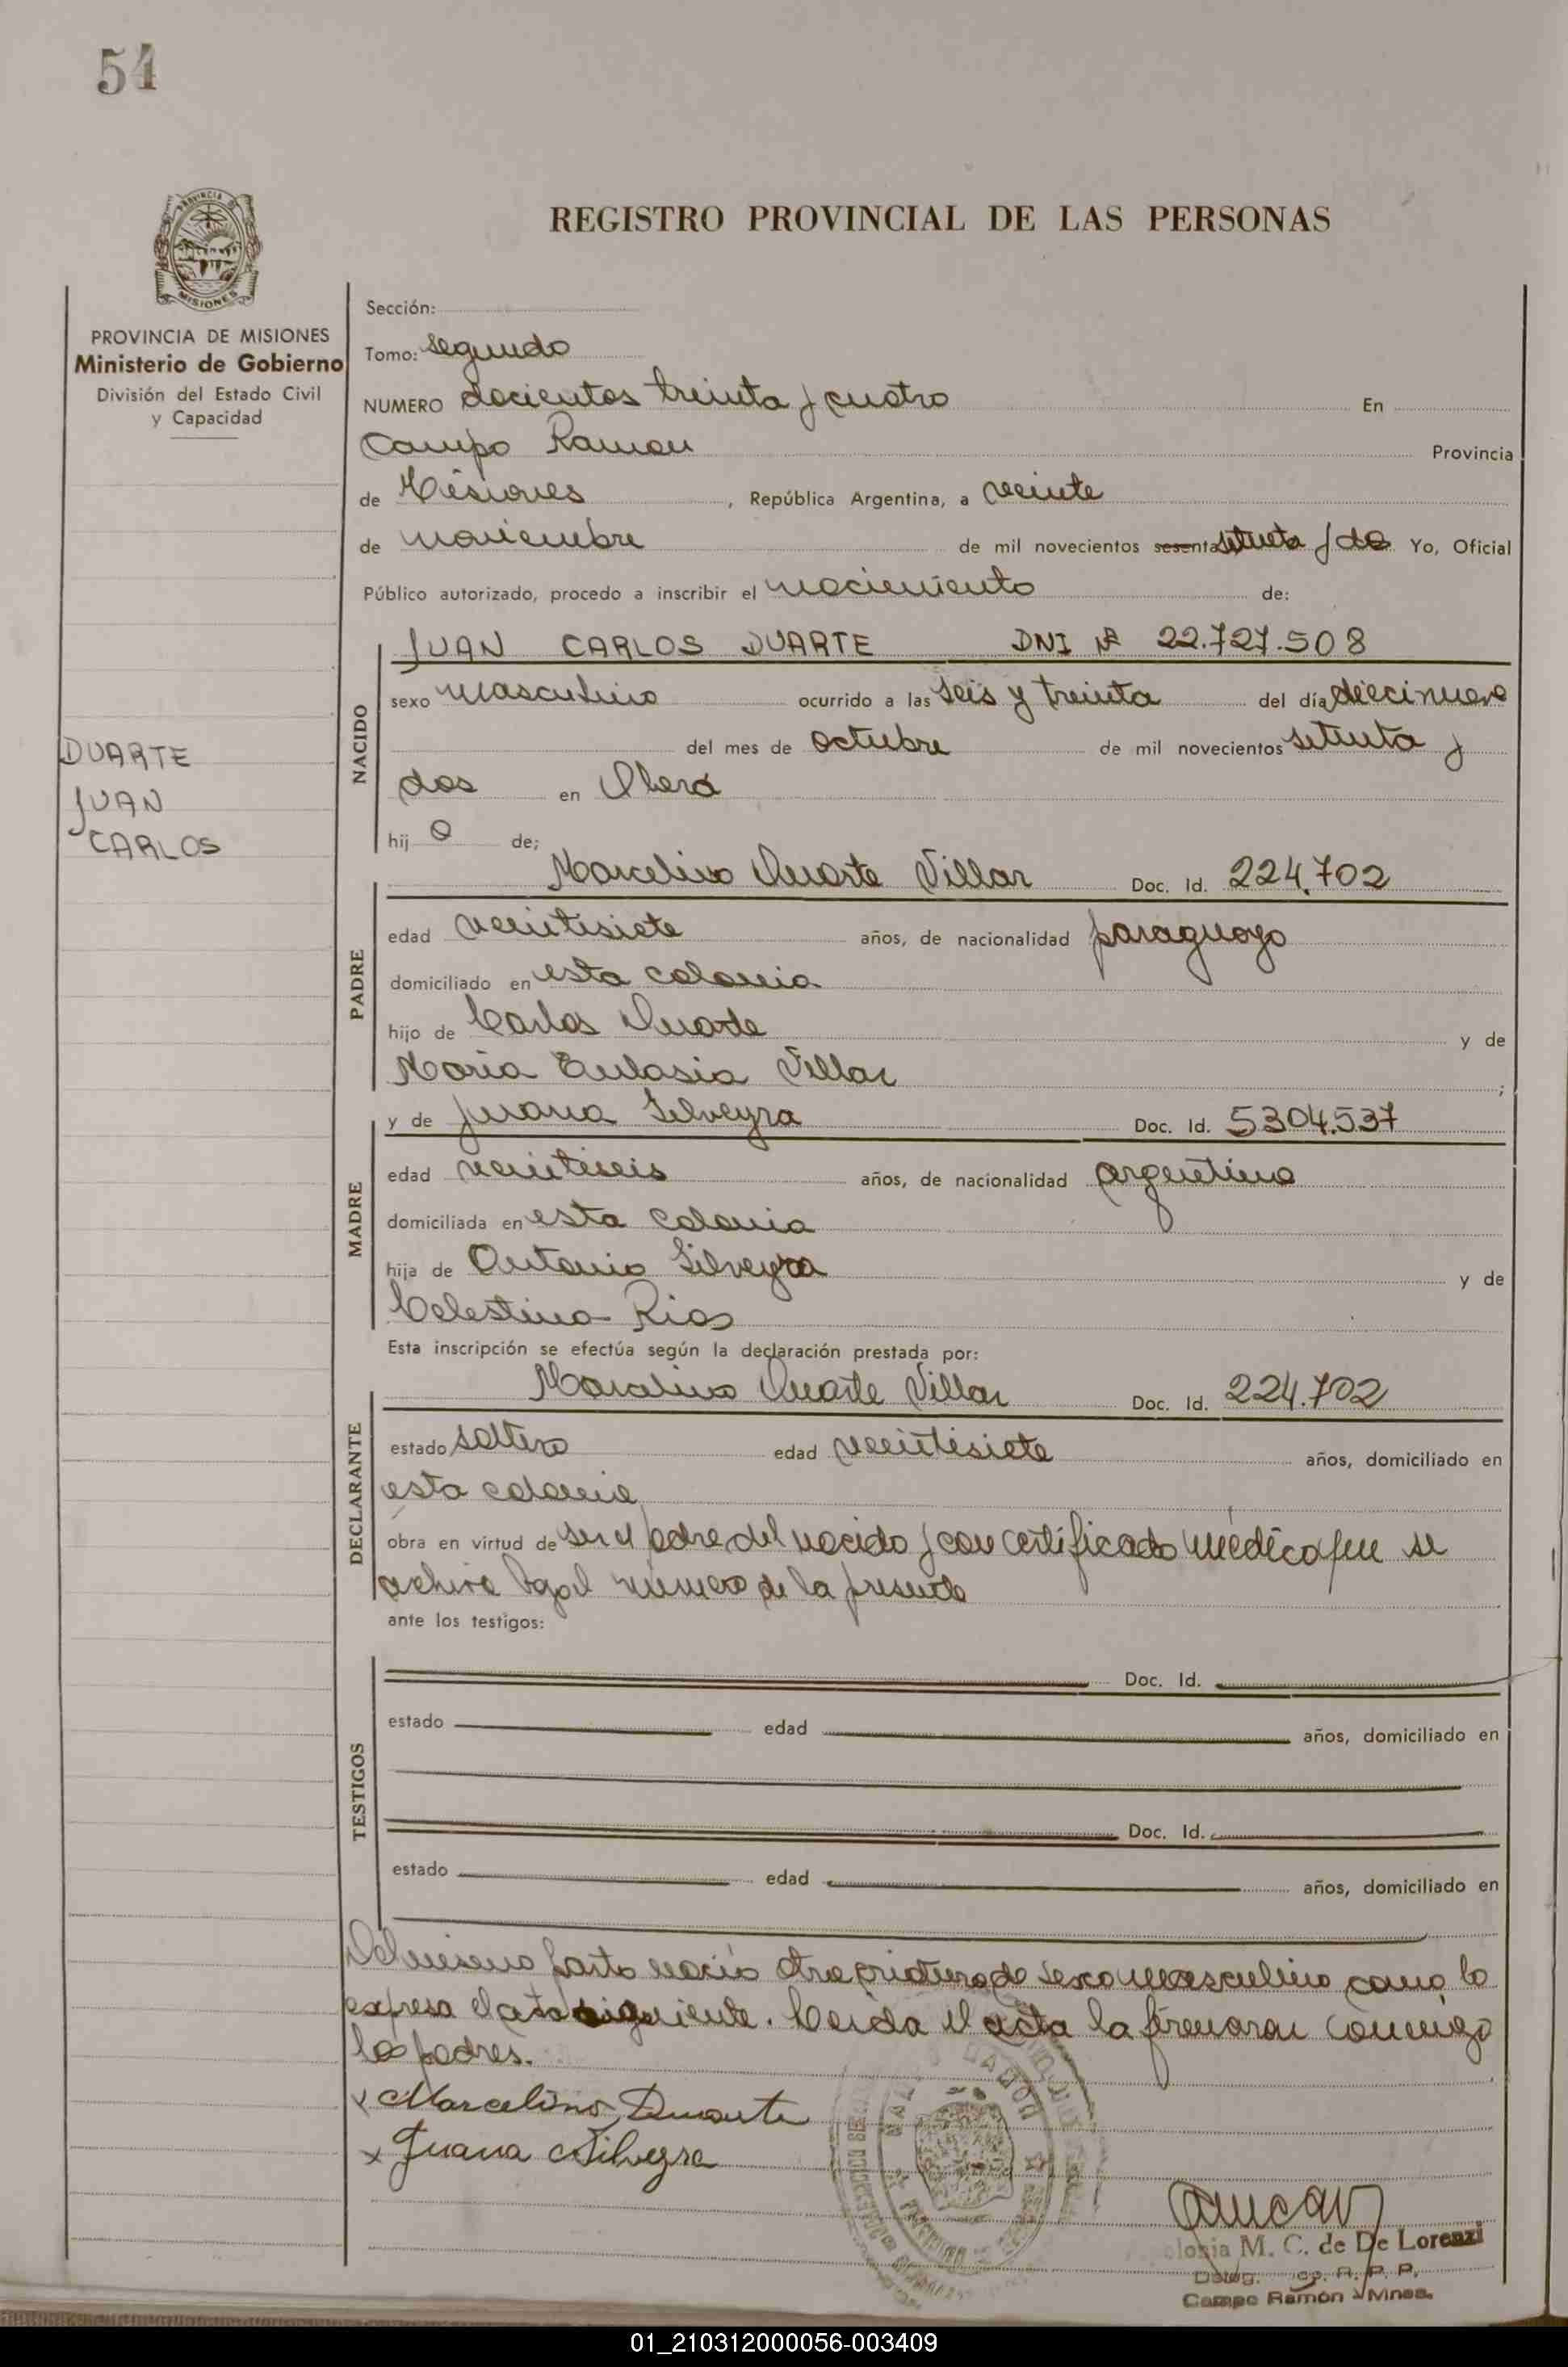 54
REGISTRO PROVINCIAL DE LAS PERSONAS
PROVINCIA DE
MISIONES
PROVINCIA DE MISIONES
Ministerio de Gobierno
División del Estado Civil
y Capacidad
Sección:
Tomo: segundo
NUMERO docientos treinta y cuatro En
Campo Ramon Provincia
de Misiones , República Argentina, a veinte
de noviembre de mil novecientos sesenta setenta y dos Yo, Oficial
Público autorizado, procedo a inscribir el nacimiento de:
NACIDO
JUAN CARLOS DUARTE DNI Nº 22.727.508
sexo masculino ocurrido a las seis y treinta del día diecinueve
del mes de octubre de mil novecientos setenta y
dos en Oberá
hij o de;
DUARTE
JUAN
CARLOS
PADRE
Marcelino Duarte Villar Doc. Id. 224.702
edad veintisiete años, de nacionalidad paraguayo
domiciliado en esta colonia
hijo de Carlos Duarte y de
Maria Eulasia Villar ;
MADRE
y de Juana Silveyra Doc. Id. 5304.537
edad veintiseis años, de nacionalidad argentina
domiciliada en esta colonia
hija de Antonio Silveyra y de
Celestina Rios
Esta inscripción se efectúa según la declaración prestada por:
DECLARANTE
Marcelino Duarte Villar Doc. Id. 224.702
estado soltero edad veintisiete años, domiciliado en
esta colonia
obra en virtud de ser el padre del nacido y con certificado médico que se
archiva bajo el número de la presente
ante los testigos:
TESTIGOS
Doc. Id.
estado edad años, domiciliado en
Doc. Id.
estado edad años, domiciliado en
Del mismo parto nació otra criatura de sexo masculino como lo
expresa el acta siguiente. Leida el acta la firmaran conmigo
los padres.
x Marcelino Duarte
x Juana Silveyra
M. C. de De Lorenzi
Deleg. R. P. P.
Campo Ramón - Mnes.
01_210312000056-003409